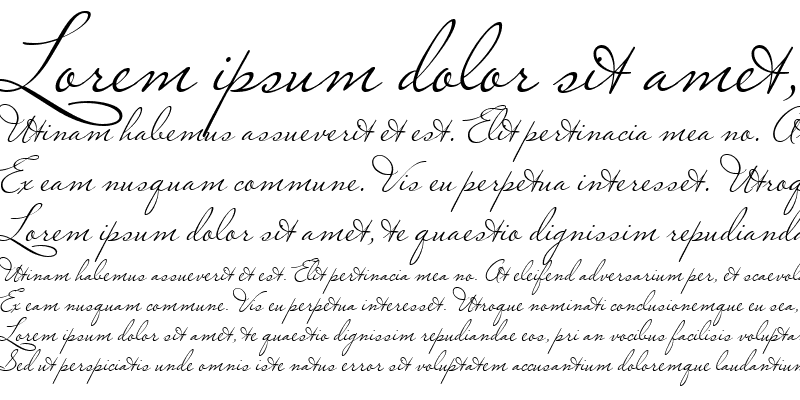 Lorem ipsum dolor sit amet,
Utinam habemus assueverit et est. Elit pertinacia mea no.
Ex eam nusquam commune. Vis eu perpetua interesset.
Lorem ipsum dolor sit amet, te quaestio dignissim
Utinam habemus assueverit et est. Elit pertinacia mea no. At eleifend adversarium per, et
Ex eam nusquam commune. Vis eu perpetua interesset. Utroque nominati conclusionemque eu sea,
Lorem ipsum dolor sit amet, te quaestio dignissim repudiandae eos, pri an vocibus facilisis
Sed ut perspiciatis unde omnis iste natus error sit voluptatem accusantium doloremque